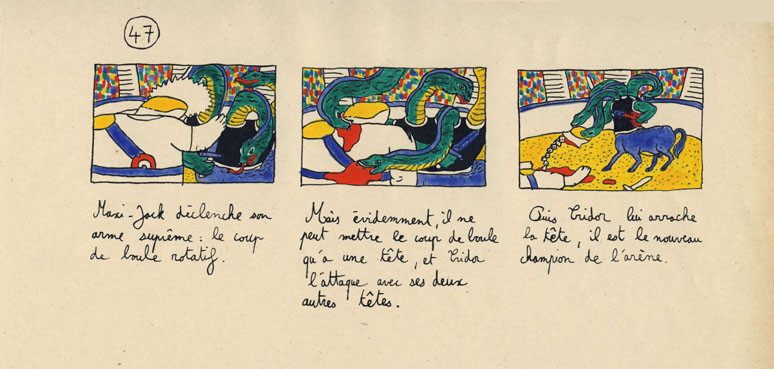 47
Maxi-Jack déclenche son
arme suprême : le coup
de boule rotatif.
Mais évidemment, il ne
peut mettre le coup de boule
qu'a une tête, et Tridor
l'attaque avec ses deux
autres têtes.
Puis Tridor lui arrache
la tête, il est le nouveau
champion de l'arène.